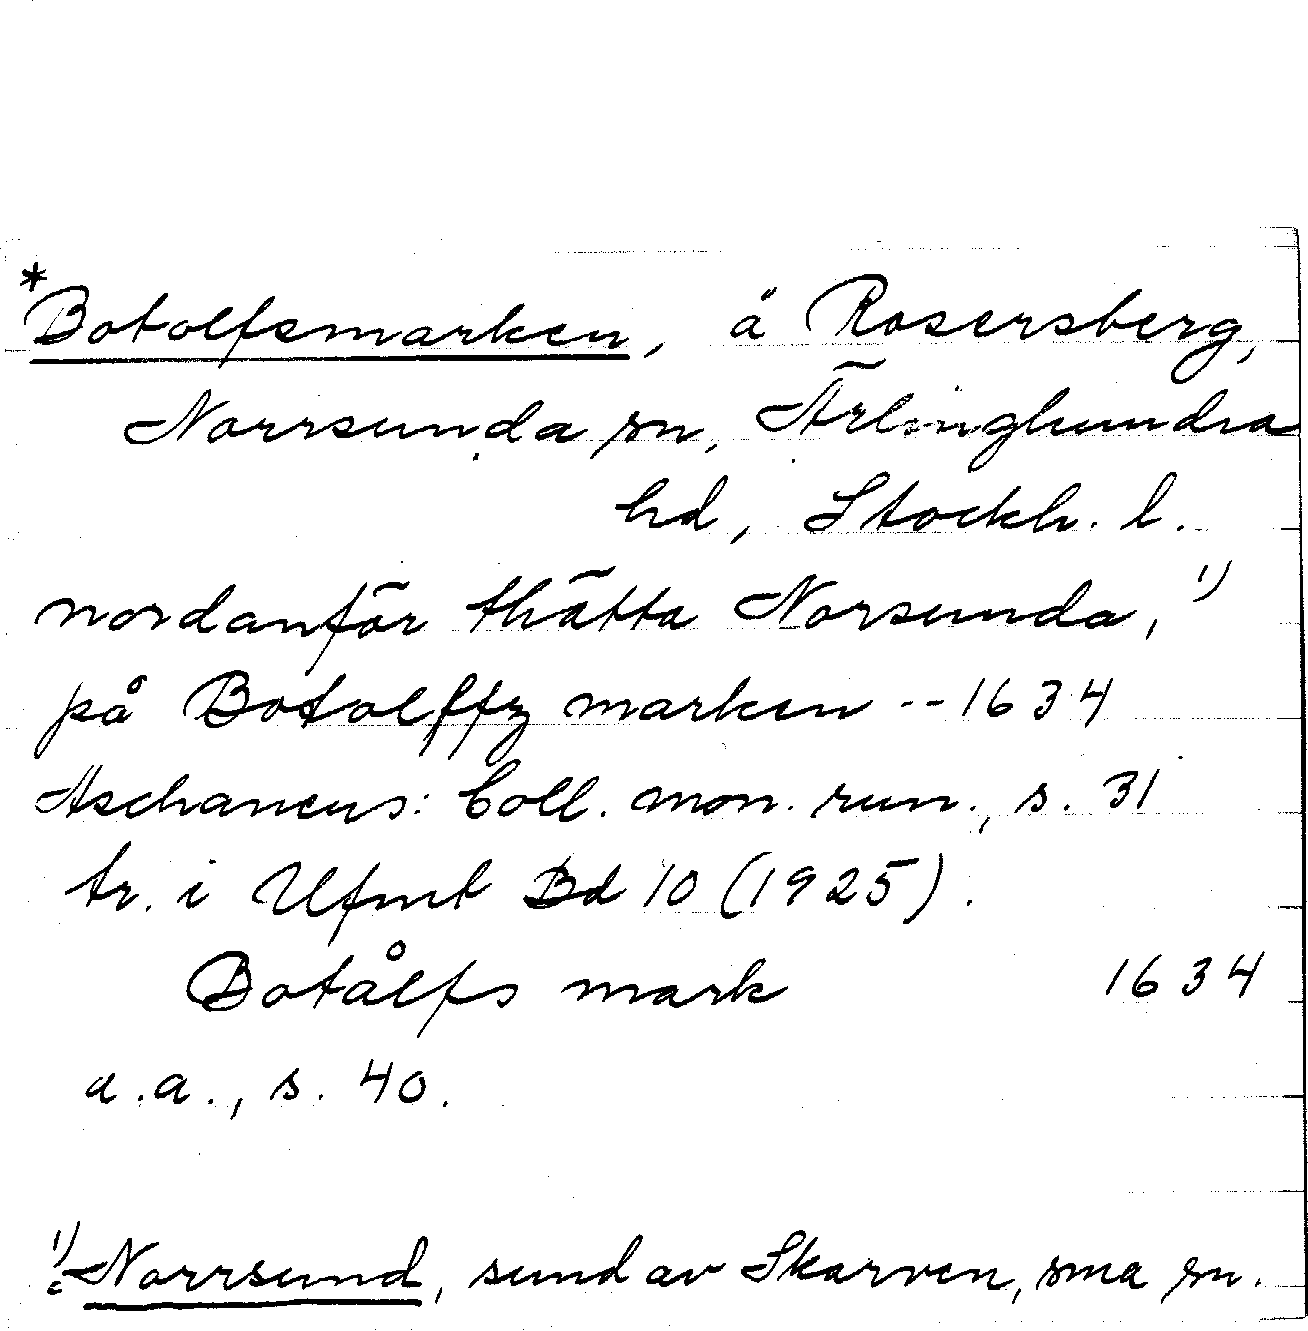 *Botolfsmarken, å Rosersberg,
Norrsunda sn, Ärlinghundra
hd, Stockh. l.
nordanför thätta Norsunda, 1)
på Botolffz marken -- 1634
Aschaneus: Coll. mon. run., s. 31
tr. i Ufmt Bd 10 (1925).
Botålfs mark 1634
a.a., s. 40.
1) : Norrsund, sund av Skarven, sma sn.